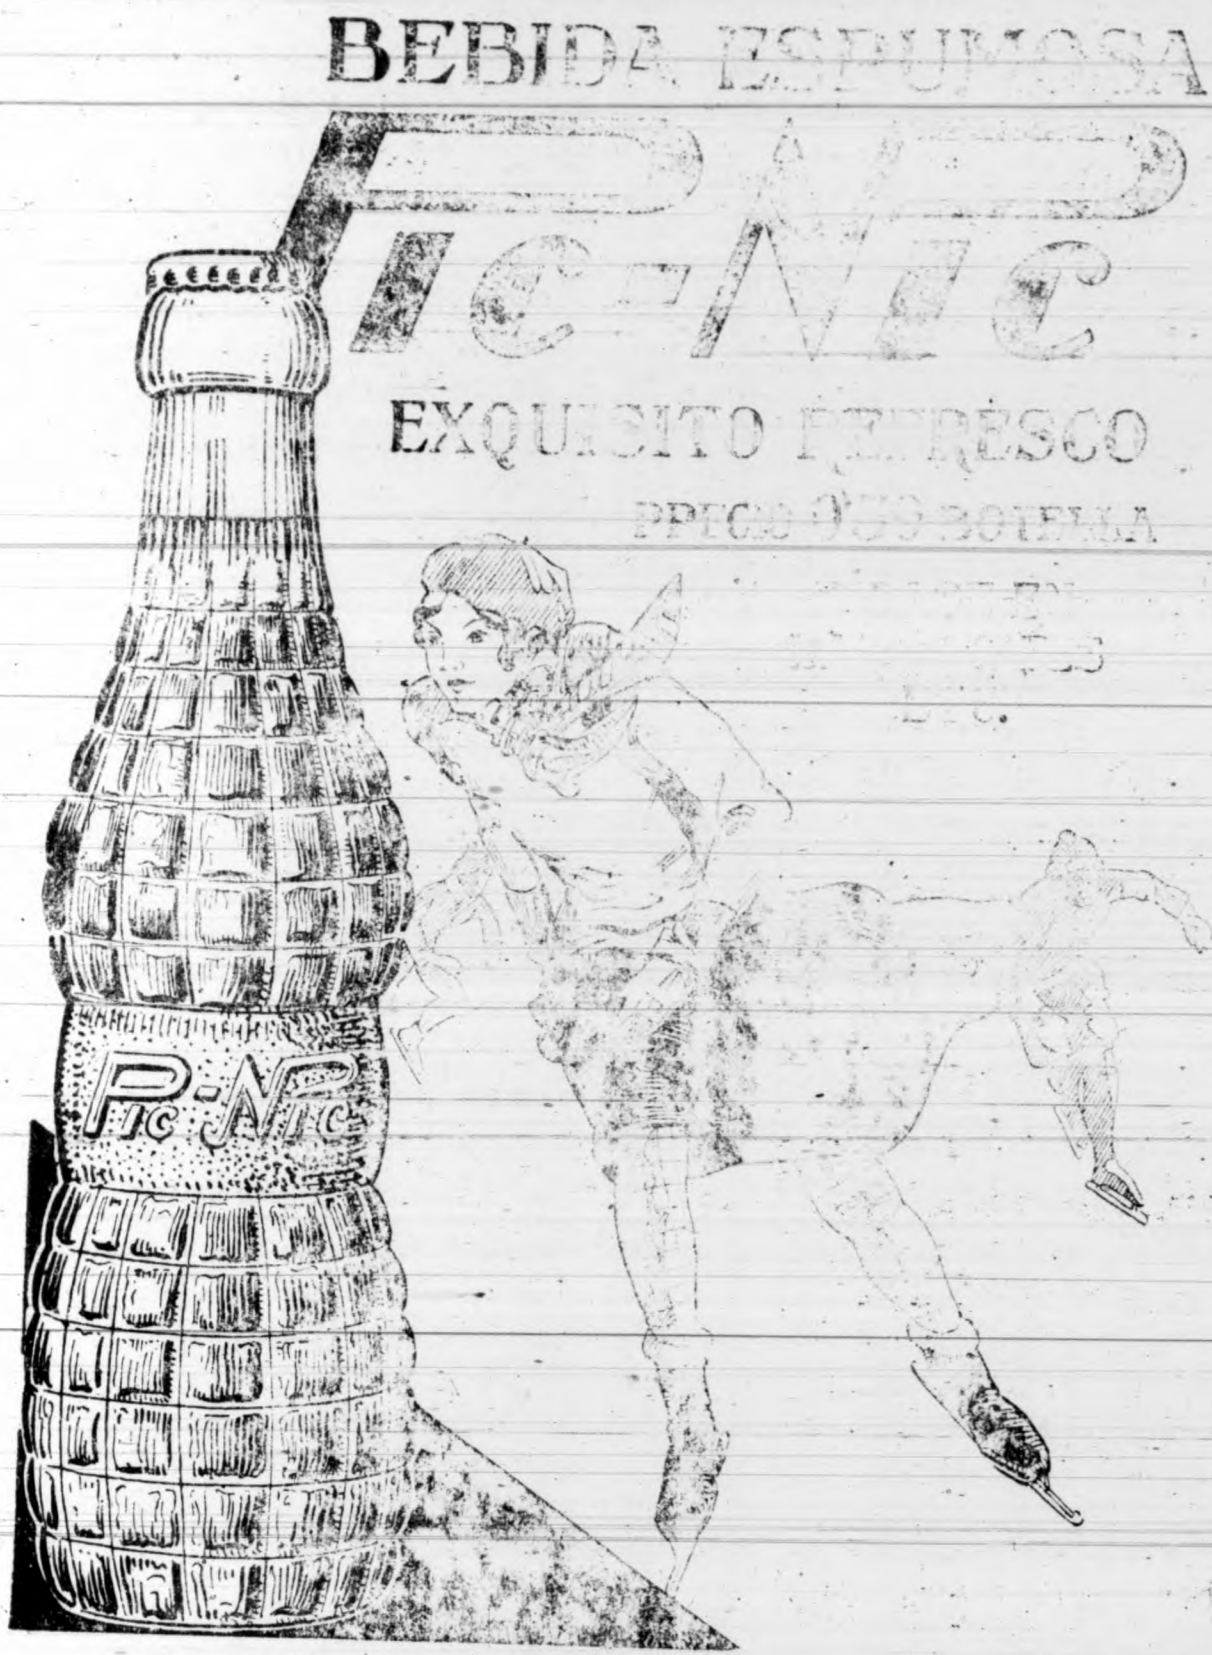 BEBIDA ESPUMOSA
Pic-Nic
EXQUISITO REFRESCO
PRECIO BOTELLA
EN
ETC.
Pic-Nic